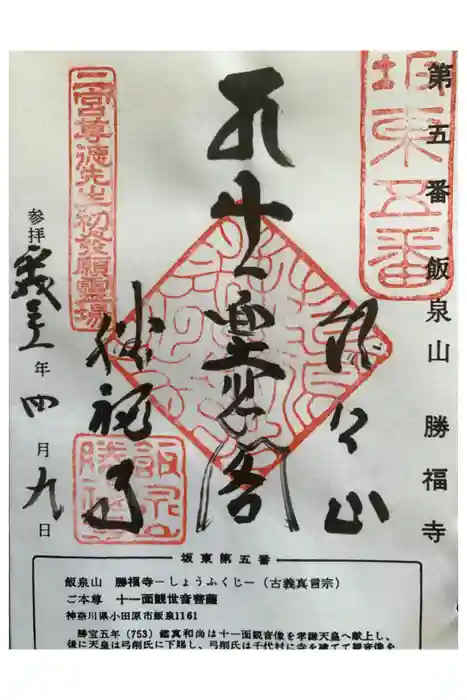 第五番 飯泉山 勝福寺
坂東五番
飯泉山
勝福寺
二宮尊徳先生初発願霊場
参拝
年四月九日
飯泉山
勝福寺
坂東第五番
飯泉山 勝福寺－しょうふくじ－（古義真言宗）
ご本尊 十一面観世音菩薩
神奈川県小田原市飯泉1161
勝宝五年（753）鑑真和尚は十一面観音像を孝謙天皇へ献上し、
後に天皇は弓削氏に下賜し、弓削氏は千代村に寺を建てて観音像を